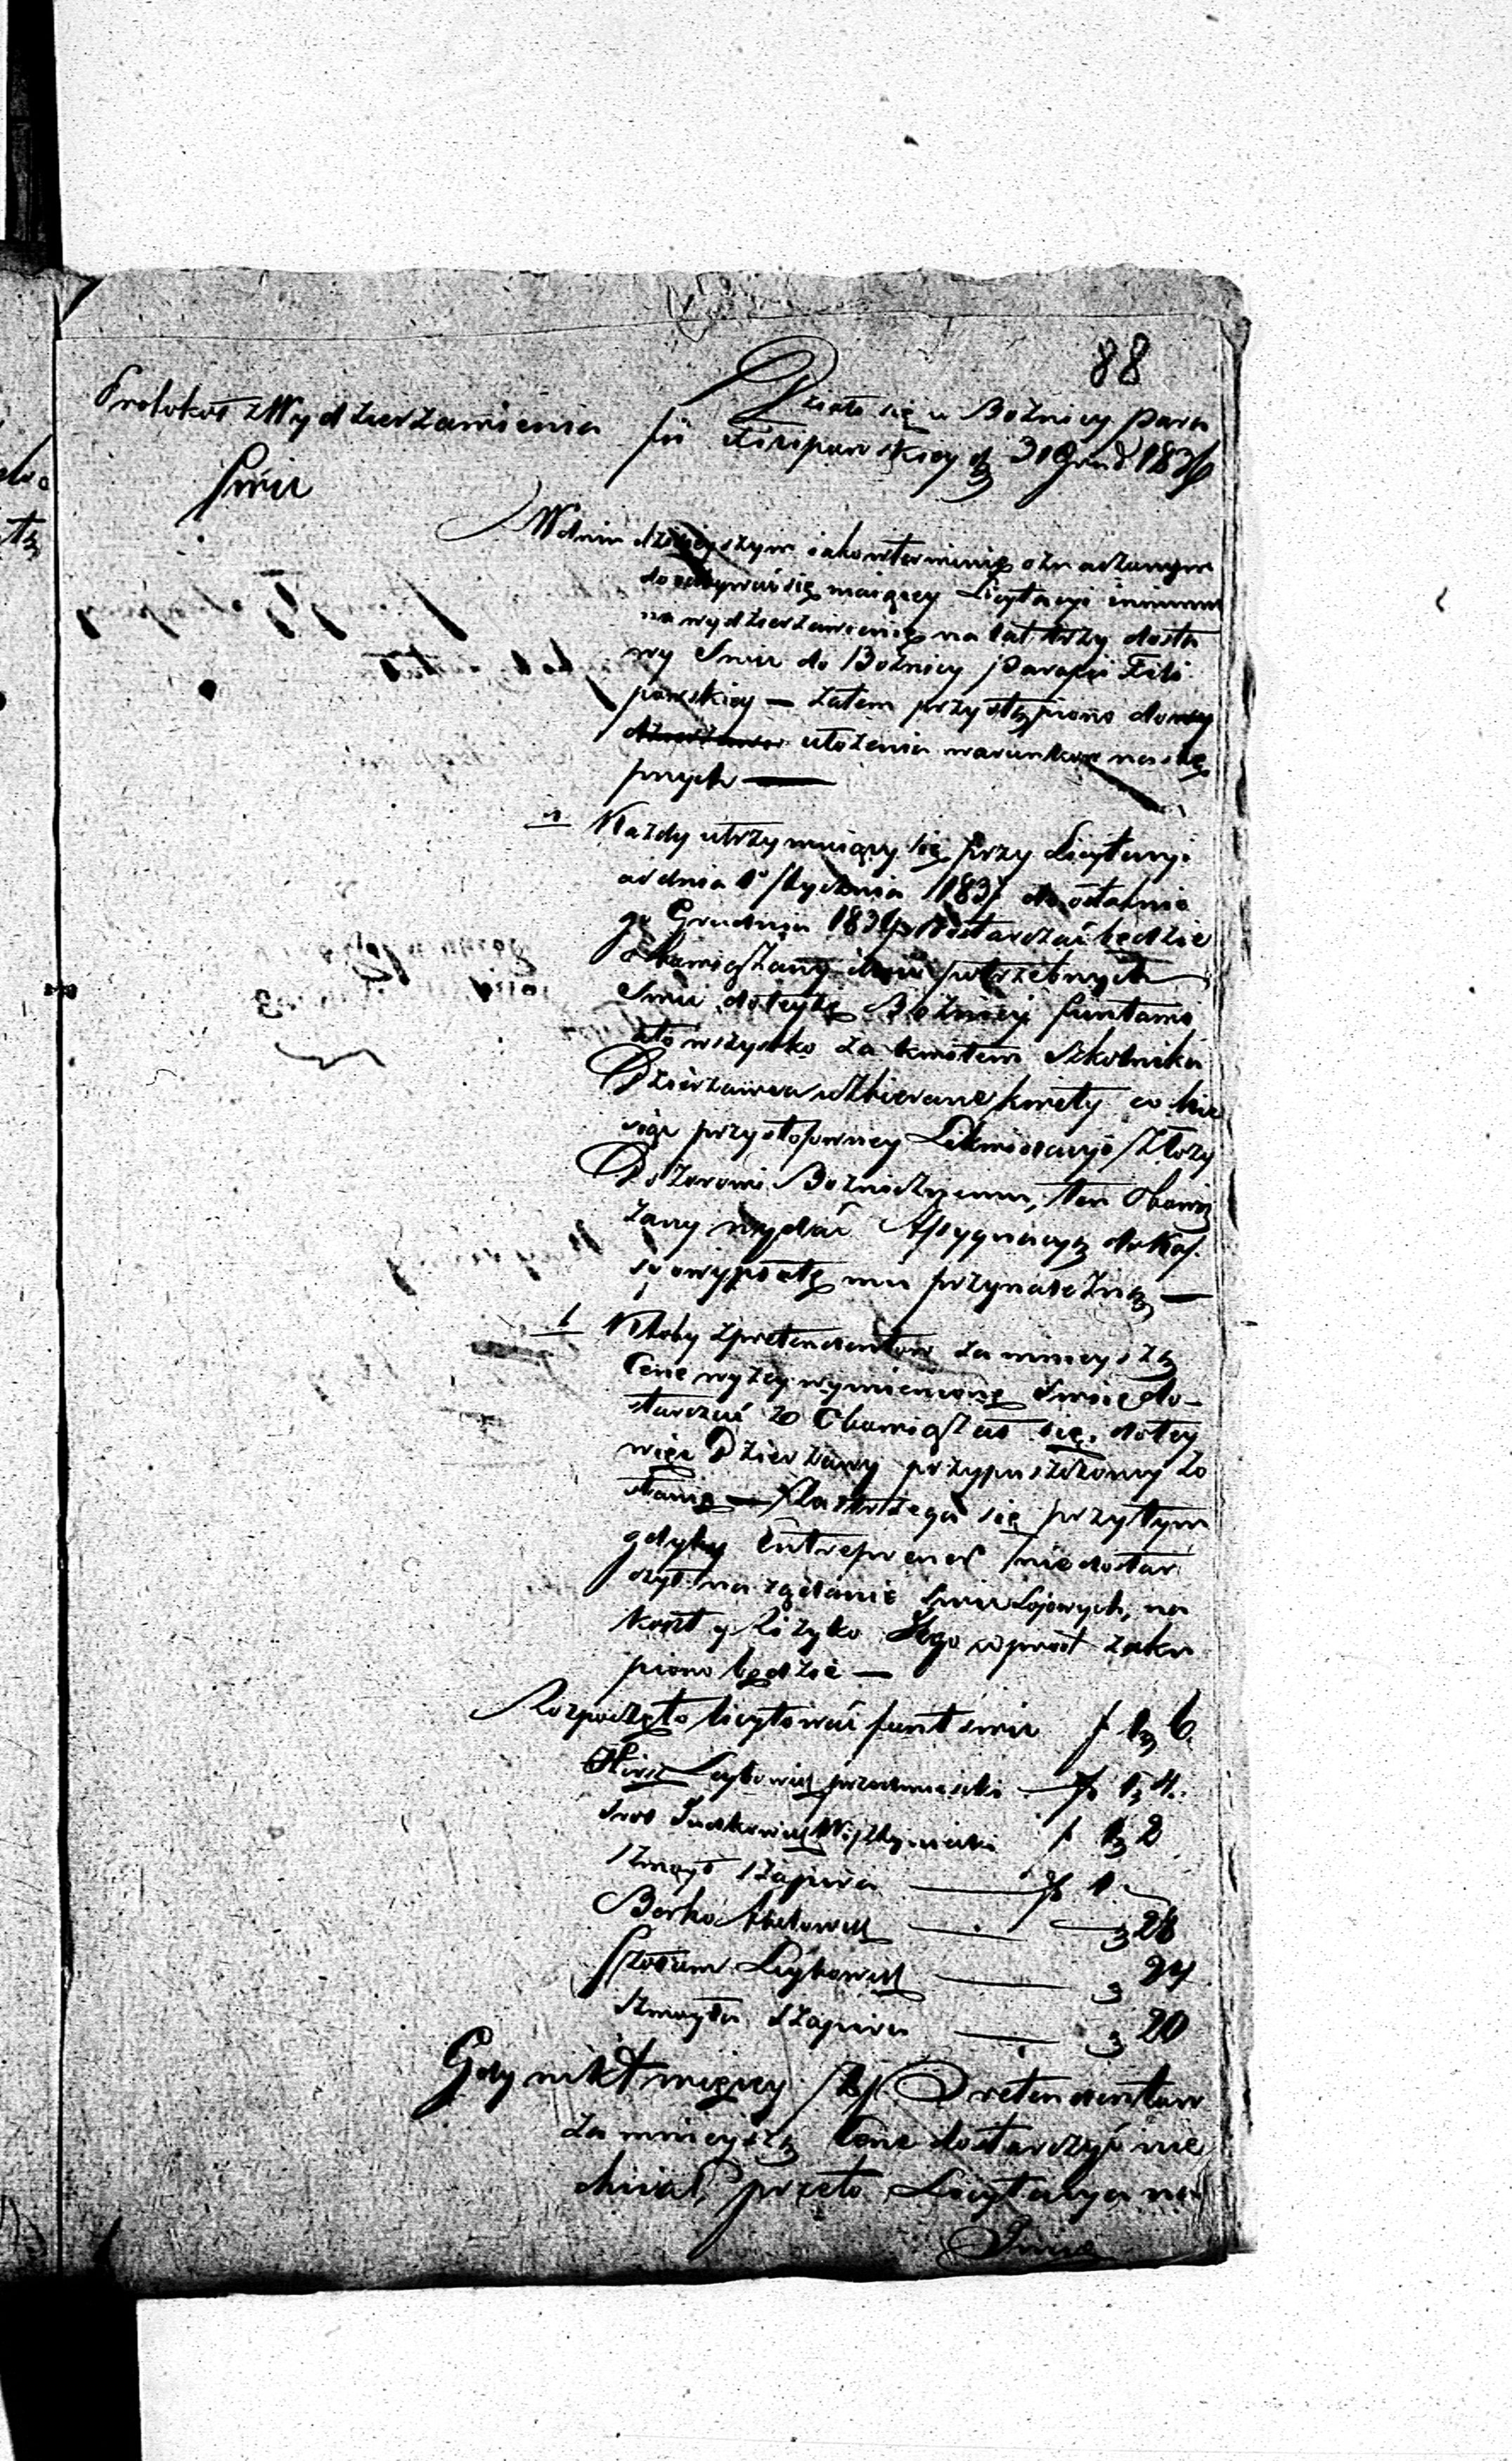 88
Protokoł z Wydzierzawienia
Swic
Działo się w Bożnicy para
fii Filipowskiey d 31 Grud 1836
W dniu dzisieyszym iako w terminie oznaczonym
do odbywać się maiącey Licytacyi in minus
na wydzierzawienie na lat trzy dosta
wy Swic do Bożnicy Parafii Fili
powskiey — Zatem przystąpiono do wy
dzierżawi ułożenia warunkow nastę
pnych —
a Każdy utrzymuiący się przy Licytacyi
od dnia 1 Stycznia 1837 do ostatnie
go Grudnia dostarczać będzie
obowiązany potrzebnych
Swic do teyże Bożnicy funtami
a to wszystko za kwitem Szkolnika
Dzierżawca uzbierane kwity co mie
siąc przy stosowney Likwidacyi złoży
Dozorowi Bożniczemu, ten Obowią
zany wydać Assygnacyą do Kas
sy o wypłatę mu przynależną —
b Ktoby z pretendentow za mnieyszą
Cene wyżey wymienione Swice do-
starczać zo Obowiązał się, do tey
więc Dzierżawy przypuszczony zo
stanie — Zastrzega się przytym
gdyby Entreprener niedostar
czył na żądanie Swic Łojowych, na
koszt y Rizyko Jego wprost zaku
piono będzie —
Rozpoczęto licytować funt swic f 1, 6.
Hirsz Leybowicz przedmieski f 1, 4.
Judkowicz f 1, 2
Szmayś Szapira f 1.
Berko Abelowicz — 28
Szolim Leybowicz — 24
Szmayła Szapira — 20
Gdy nikt więcey z Pretendentow
za mnieyszą Cene dostarczyć nie
chciał, przeto Licytacya na
Swice